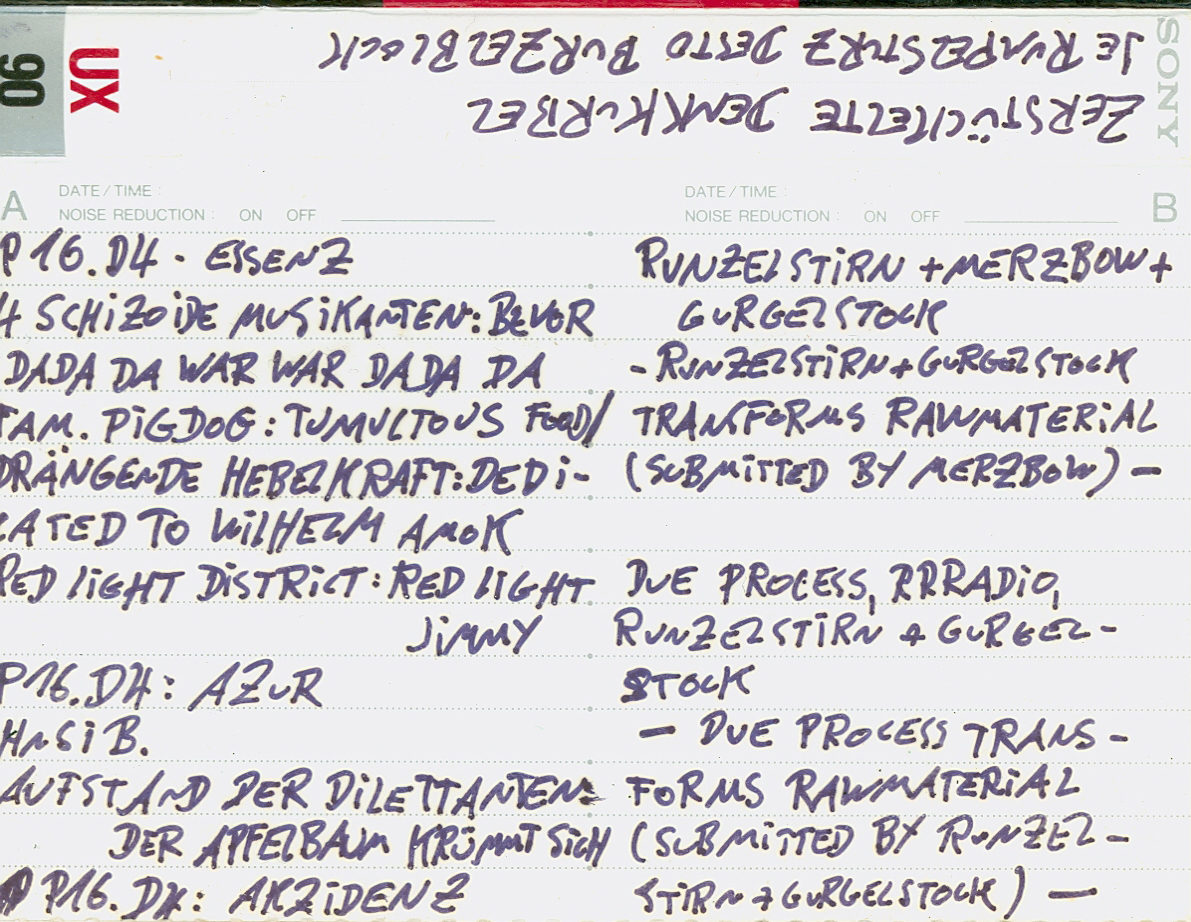 SONY
UX
90
JE RUMPELSTURZ DESTO BURZELBLOCK
ZERSTÜCKELTE DENKKURBEL
A
DATE / TIME :
NOISE REDUCTION : ON OFF
P16.D4 - ESSENZ
4 SCHIZOIDE MUSIKANTEN: BEVOR
DADA DA WAR WAR DADA DA
TAM. PIGDOG: TUMULTOUS FOOD/
DRÄNGENDE HEBELKRAFT: DEDI-
CATED TO WILHELM AMOK
RED LIGHT DISTRICT: RED LIGHT
JIMMY
P16.D4: AZUR
HNSI B.
AUFSTAND DER DILETTANTEN:
DER APFELBAUM KRÜMMT SICH
P16.D4: AKZIDENZ
B
DATE / TIME :
NOISE REDUCTION : ON OFF
RUNZELSTIRN + MERZBOW +
GURGELSTOCK
- RUNZELSTIRN + GURGELSTOCK
TRANSFORMS RAWMATERIAL
(SUBMITTED BY MERZBOW) -
DUE PROCESS, RRRADIO,
RUNZELSTIRN + GURGEL-
STOCK
- DUE PROCESS TRANS-
FORMS RAWMATERIAL
(SUBMITTED BY RUNZEL-
STIRN + GURGELSTOCK) -